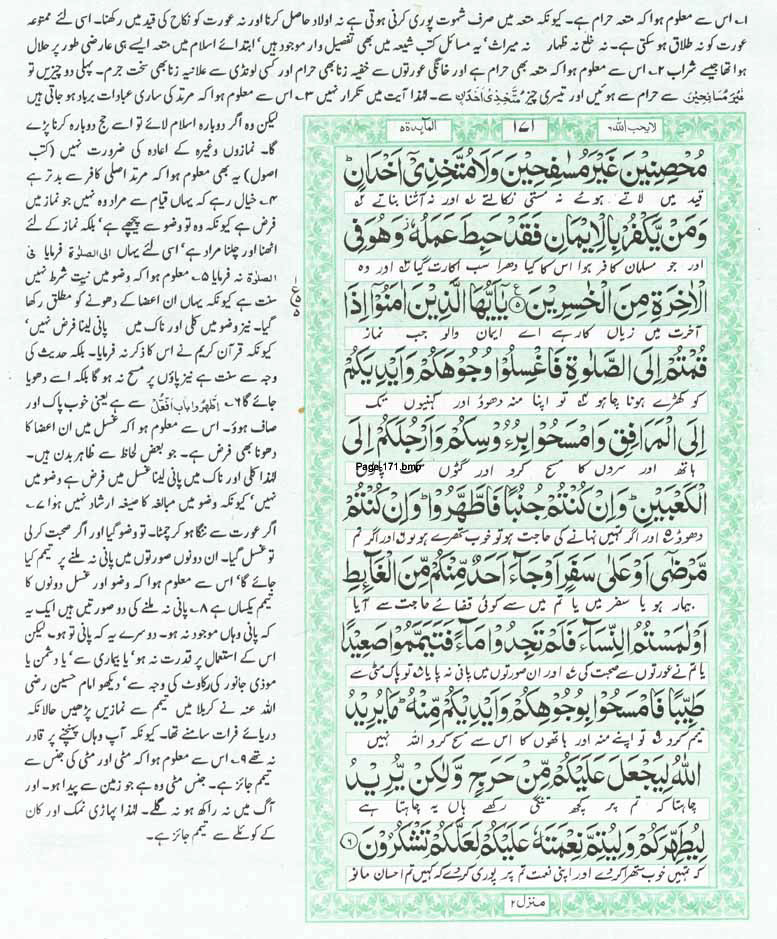 ۱؎ اس سے معلوم ہوا کہ متعہ حرام ہے۔ کیونکہ متعہ میں صرف شہوت پوری کرنی ہوتی ہے نہ اولاد حاصل کرنا اور نہ عورت کو نکاح کی قید میں رکھنا۔ اسی لئے ممتوعہ
عورت کو نہ طلاق ہو سکتی ہے۔ نہ خلع نہ ظہار نہ میراث' یہ مسائل کتب شیعہ میں بھی تفصیل وار موجود ہیں' ابتدائے اسلام میں متعہ ایسے ہی عارضی طور پر حلال
ہوا تھا جیسے شراب ۲؎ اس سے معلوم ہوا کہ متعہ بھی حرام ہے اور خانگی عورتوں سے خفیہ زنا بھی حرام اور کسی لونڈی سے علانیہ زنا بھی سخت جرم۔ پہلی دو چیزیں تو
غَيْرَ مُسَافِحِيْنَ سے حرام سے ہوئیں اور تیسری چیز مُتَّخِذِيْٓ اَخْدَانٍ سے۔ لہٰذا آیت میں تکرار نہیں ۳؎ اس سے معلوم ہوا کہ مرتد کی ساری عبادات برباد ہو جاتی ہیں
لیکن وہ اگر دوبارہ اسلام لائے تو اسے حج دوبارہ کرنا پڑے
گا۔ نمازوں وغیرہ کے اعادہ کی ضرورت نہیں (کتب
اصول) یہ بھی معلوم ہوا کہ مرتد اصلی کافر سے بدتر ہے
۴؎ خیال رہے کہ یہاں قیام سے مراد وہ نہیں جو نماز میں
فرض ہے کیونکہ وہ تو وضو سے پیچھے ہے' بلکہ نماز کے لئے
اٹھنا اور چلنا مراد ہے' اسی لئے یہاں الی الصلوٰۃ فرمایا فی
الصلوٰۃ نہ فرمایا ۵؎ معلوم ہوا کہ وضو میں نیت شرط نہیں
سنت ہے کیونکہ یہاں ان اعضا کے دھونے کو مطلق رکھا
گیا۔ نیز وضو میں کلی اور ناک میں پانی لینا فرض نہیں'
کیونکہ قرآن کریم نے اس کا ذکر نہ فرمایا۔ بلکہ حدیث کی
وجہ سے سنت ہے نیز پاؤں پر مسح نہ ہو گا بلکہ اسے دھویا
جائے گا ۶؎ اِطَّهَّرُوْا باب اِفَّعُّل سے ہے یعنی خوب پاک اور
صاف ہوؤ۔ اس سے معلوم ہوا کہ غسل میں ان اعضا کا
دھونا بھی فرض ہے۔ جو بعض لحاظ سے ظاہر بدن ہیں۔
لہٰذا کلی اور ناک میں پانی لینا غسل میں فرض ہے وضو میں
نہیں' کیونکہ وضو میں مبالغہ کا صیغہ ارشاد نہیں ہوا ۷؎
اگر عورت سے ننگا ہو کر چمٹا۔ تو وضو گیا اور اگر صحبت کر لی
تو غسل گیا۔ ان دونوں صورتوں میں پانی نہ ملنے پر تیمم کیا
جائے گا' اس سے معلوم ہوا کہ وضو اور غسل دونوں کا
تیمم یکساں ہے ۸؎ پانی نہ ملنے کی دو صورتیں ہیں ایک یہ
کہ پانی وہاں موجود نہ ہو۔ دوسرے یہ کہ پانی تو ہو۔ لیکن
اس کے استعمال پر قدرت نہ ہو' یا بیماری سے' یا دشمن یا
موذی جانور کی رکاوٹ کی وجہ سے' دیکھو امام حسین رضی
اللہ عنہ نے کربلا میں تیمم سے نمازیں پڑھیں حالانکہ
دریائے فرات سامنے تھا۔ کیونکہ آپ وہاں پہنچنے پر قادر
نہ تھے ۹؎ اس سے معلوم ہوا کہ مٹی اور مٹی کی جنس سے
تیمم جائز ہے۔ جنس مٹی وہ ہے جو زمین سے پیدا ہو۔ اور
آگ میں نہ راکھ ہو نہ گلے۔ لہٰذا پہاڑی نمک اور کان
کے کوئلے سے تیمم جائز ہے۔
لا يحب الله ۶ ۱۷۱ المآئدة ۵
مُحْصِنِيْنَ غَيْرَ مُسٰفِحِيْنَ وَلَا مُتَّخِذِيْٓ اَخْدَانٍ ؕ
قید میں لاتے ہوئے نہ مستی نکالتے ۱؎ اور نہ آشنا بناتے ۲؎
وَمَنْ يَّكْفُرْ بِالْاِيْمَانِ فَقَدْ حَبِطَ عَمَلُهٗ ؗ وَهُوَ فِي
اور جو مسلمان کافر ہوا اس کا کیا دھرا سب اکارت گیا ۳؎ اور وہ
الْاٰخِرَةِ مِنَ الْخٰسِرِيْنَ ۵ يٰٓاَيُّهَا الَّذِيْنَ اٰمَنُوْٓا اِذَا
آخرت میں زیاں کار ہے اے ایمان والو جب نماز
قُمْتُمْ اِلَى الصَّلٰوةِ فَاغْسِلُوْا وُجُوْهَكُمْ وَاَيْدِيَكُمْ
کو کھڑے ہونا چاہو ۴؎ تو اپنا منہ دھوؤ اور کہنیوں تک
اِلَى الْمَرَافِقِ وَامْسَحُوْا بِرُءُوْسِكُمْ وَاَرْجُلَكُمْ اِلَى
ہاتھ اور سروں کا مسح کرو اور گٹوں تک پاؤں
Page-171.bmp
الْكَعْبَيْنِ ؕ وَاِنْ كُنْتُمْ جُنُبًا فَاطَّهَّرُوْا ؕ وَاِنْ كُنْتُمْ
دھوؤ ۵؎ اور اگر تمہیں نہانے کی حاجت ہو تو خوب ستھرے ہو لو ۶؎ اور اگر تم
مَّرْضٰٓى اَوْ عَلٰى سَفَرٍ اَوْ جَآءَ اَحَدٌ مِّنْكُمْ مِّنَ الْغَآئِطِ
بیمار ہو یا سفر میں یا تم میں سے کوئی قضائے حاجت سے آیا
اَوْ لٰمَسْتُمُ النِّسَآءَ فَلَمْ تَجِدُوْا مَآءً فَتَيَمَّمُوْا صَعِيْدًا
یا تم نے عورتوں سے صحبت کی ۷؎ اور ان صورتوں میں پانی نہ پایا ۸؎ تو پاک مٹی سے
طَيِّبًا فَامْسَحُوْا بِوُجُوْهِكُمْ وَاَيْدِيْكُمْ مِّنْهُ ؕ مَا يُرِيْدُ
تیمم کرو ۹؎ تو اپنے منہ اور ہاتھوں کا اس سے مسح کرو اللہ نہیں
اللّٰهُ لِيَجْعَلَ عَلَيْكُمْ مِّنْ حَرَجٍ وَّلٰكِنْ يُّرِيْدُ
چاہتا کہ تم پر کچھ تنگی رکھے ہاں یہ چاہتا ہے
لِيُطَهِّرَكُمْ وَلِيُتِمَّ نِعْمَتَهٗ عَلَيْكُمْ لَعَلَّكُمْ تَشْكُرُوْنَ ۶
کہ تمہیں خوب ستھرا کر دے اور اپنی نعمت تم پر پوری کر دے کہ کہیں تم احسان مانو
منزل ۲